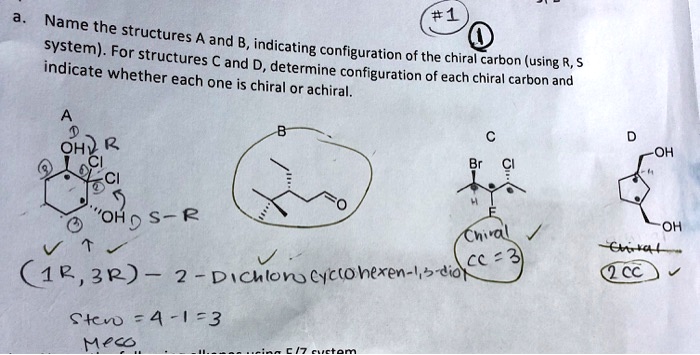 #1
1
a. Name the structures A and B, indicating configuration of the chiral carbon (using R, S
system). For structures C and D, determine configuration of each chiral carbon and
indicate whether each one is chiral or achiral.
A
B
C
D
1
OH 2 R
Cl
Cl
3
"OH S-R
O
Br Cl
H
F
OH
H
OH
Chiral
CC = 3
Chiral
2 CC
(1R, 3R) - 2 - Dichlorocyclohexen-1,3-diol
Stero = 4 - 1 = 3
Meso
using E/Z system